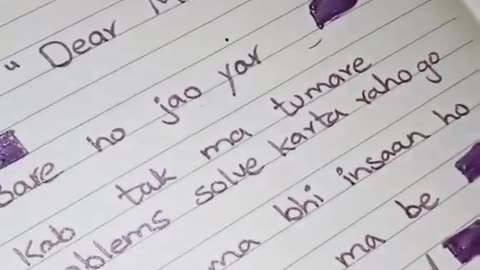 " Dear
Bare ho jao yar
Kab tak ma tumare
problems solve karta raho go
ma bhi insaan ho
ma be